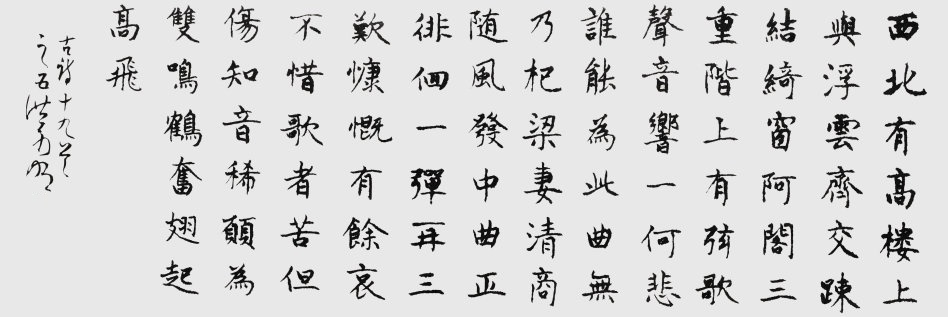 西北有高樓上
與浮雲齊交踈
結綺窗阿閣三
重階上有弦歌
聲音響一何悲
誰能為此曲無
乃杞梁妻清商
随風發中曲正
徘佪一彈再三
歎慷慨有餘哀
不惜歌者苦但
傷知音稀願為
雙鳴鶴奮翅起
高飛
古詩十九首
之五洪